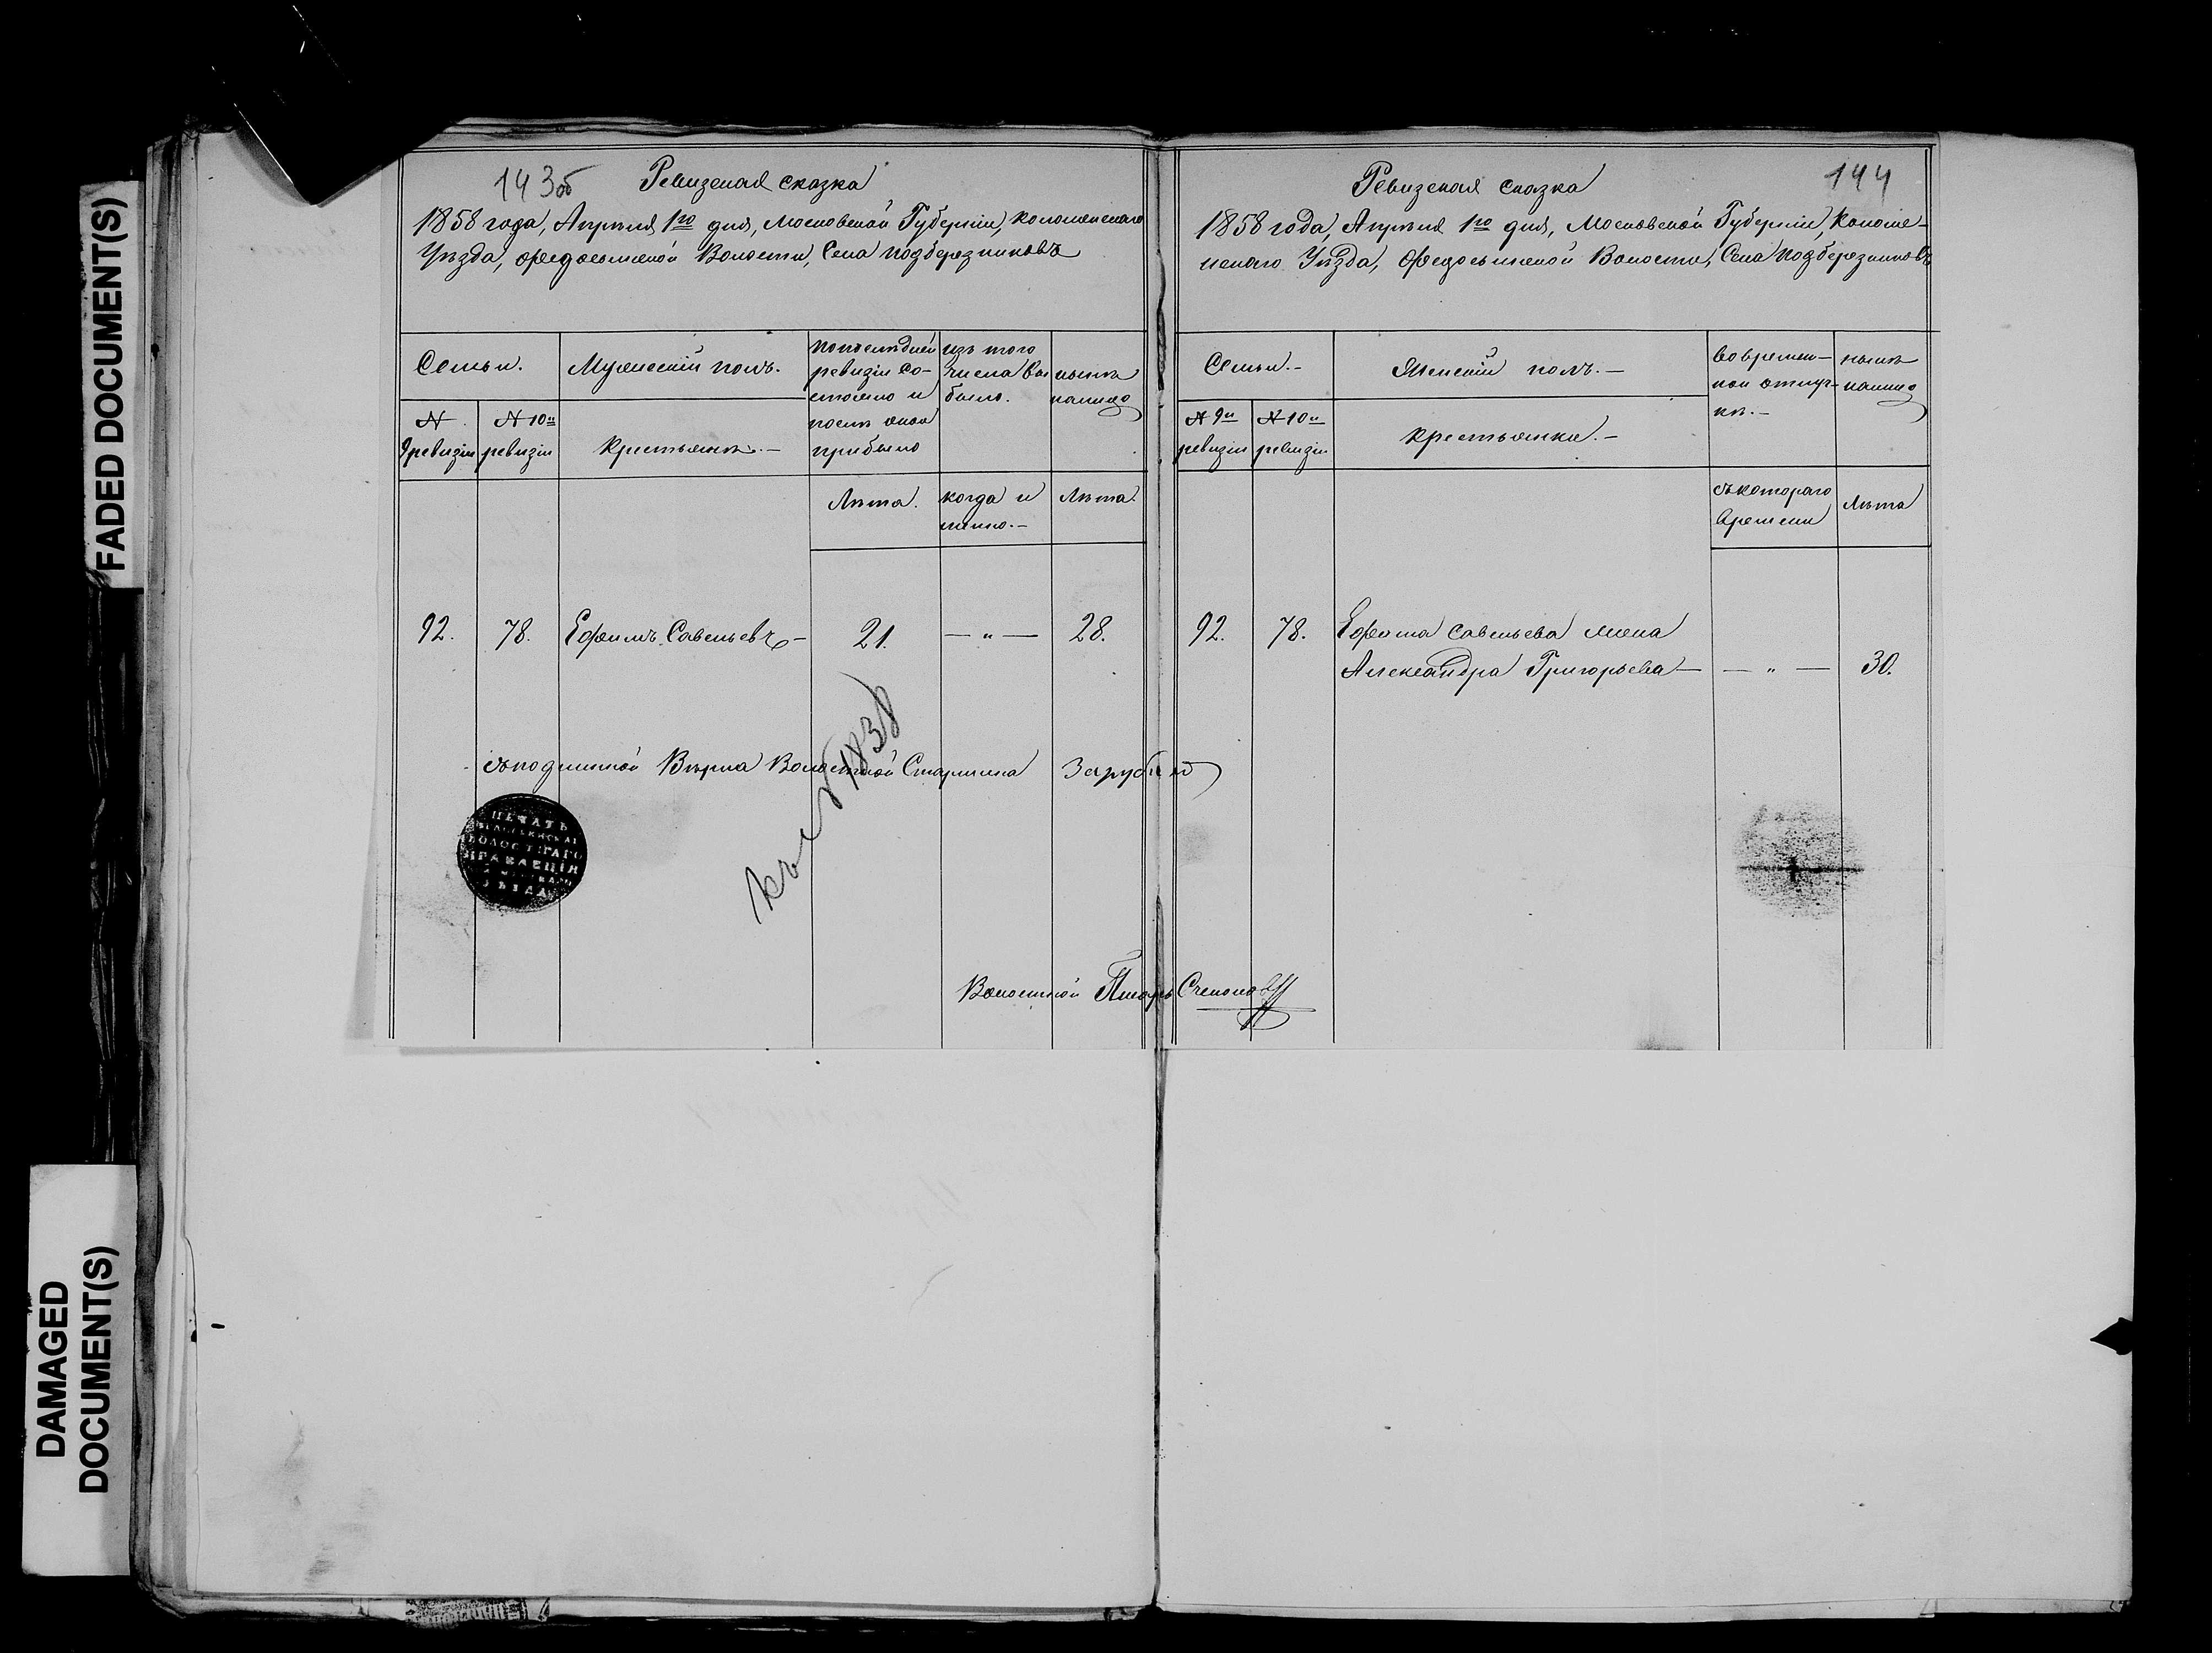 FADED DOCUMENT(S)
DAMAGED
DOCUMENT(S)
143об
Ревизская сказка
1858 года, Апрѣля 1го дня, Московской Губерніи, Коломенскаго
Уѣзда, Ѳедосьинской Волости, Села Подберезниковъ
Семьи.
Мужескій полъ.
По послѣдней
ревизіи со-
стояло и
послѣ оной
прибыло
изъ того
числа вы
было.
нынѣ
налицо
№
9 ревизіи
№ 10й
ревизіи
Крестьяне.-
Лѣта.
когда и
менно.-
Лѣта.
92.
78.
Ефимъ Савельевъ-
21.
— " —
28.
Съ подлинной Вѣрна Волостной Старшина Зарубин
къ № 1838
ПЕЧАТЬ
ВОЛОСТНАГО
ПРАВЛЕНІЯ
УѢЗДА
Волостной Писарь
144
Ревизская сказка
1858 года, Апрѣля 1го дня, Московской Губерніи, Коломе-
нскаго Уѣзда, Ѳедосьинской Волости, Села Подберезниковъ
Семьи.-
Женскій полъ.-
во времен-
ной отлуч-
кѣ.-
нынѣ
налицо
№ 9й
ревизіи
№ 10й
ревизіи
Крестьянки.-
съ котораго
времени
Лѣта
92.
78.
Ефима Савельева жена
Александра Григорьева— — " — 30.